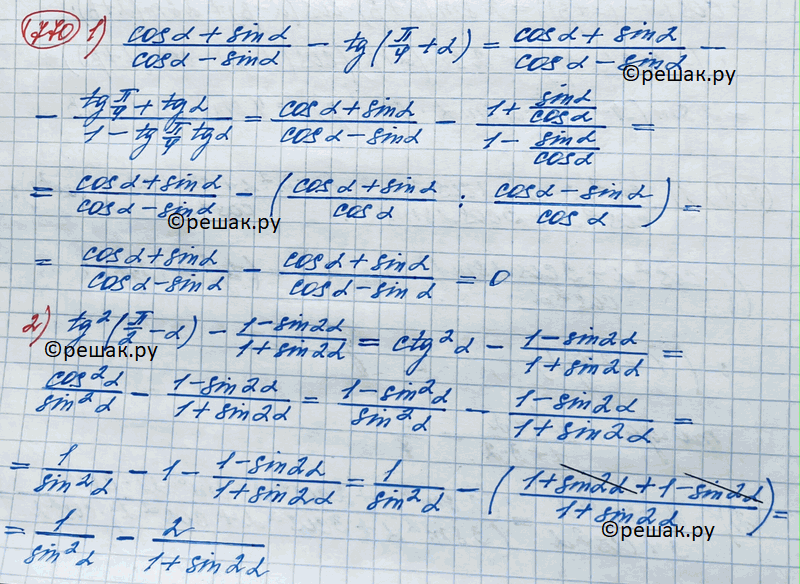 770 1) (cos α + sin α)/(cos α − sin α) − tg(π/4 + α) = (cos α + sin α)/(cos α − sin α) −
©решак.ру
− (tg π/4 + tg α)/(1 − tg π/4 tg α) = (cos α + sin α)/(cos α − sin α) − (1 + sin α/cos α)/(1 − sin α/cos α) =
= (cos α + sin α)/(cos α − sin α) − ((cos α + sin α)/cos α : (cos α − sin α)/cos α) =
©решак.ру
= (cos α + sin α)/(cos α − sin α) − (cos α + sin α)/(cos α − sin α) = 0
2) tg²(π/2 − α) − (1 − sin 2α)/(1 + sin 2α) = ctg² α − (1 − sin 2α)/(1 + sin 2α) =
©решак.ру
cos² α/sin² α − (1 − sin 2α)/(1 + sin 2α) = (1 − sin² α)/sin² α − (1 − sin 2α)/(1 + sin 2α) =
= 1/sin² α − 1 − (1 − sin 2α)/(1 + sin 2α) = 1/sin² α − ((1 + sin 2α + 1 − sin 2α)/(1 + sin 2α)) =
= 1/sin² α − 2/(1 + sin 2α)
©решак.ру